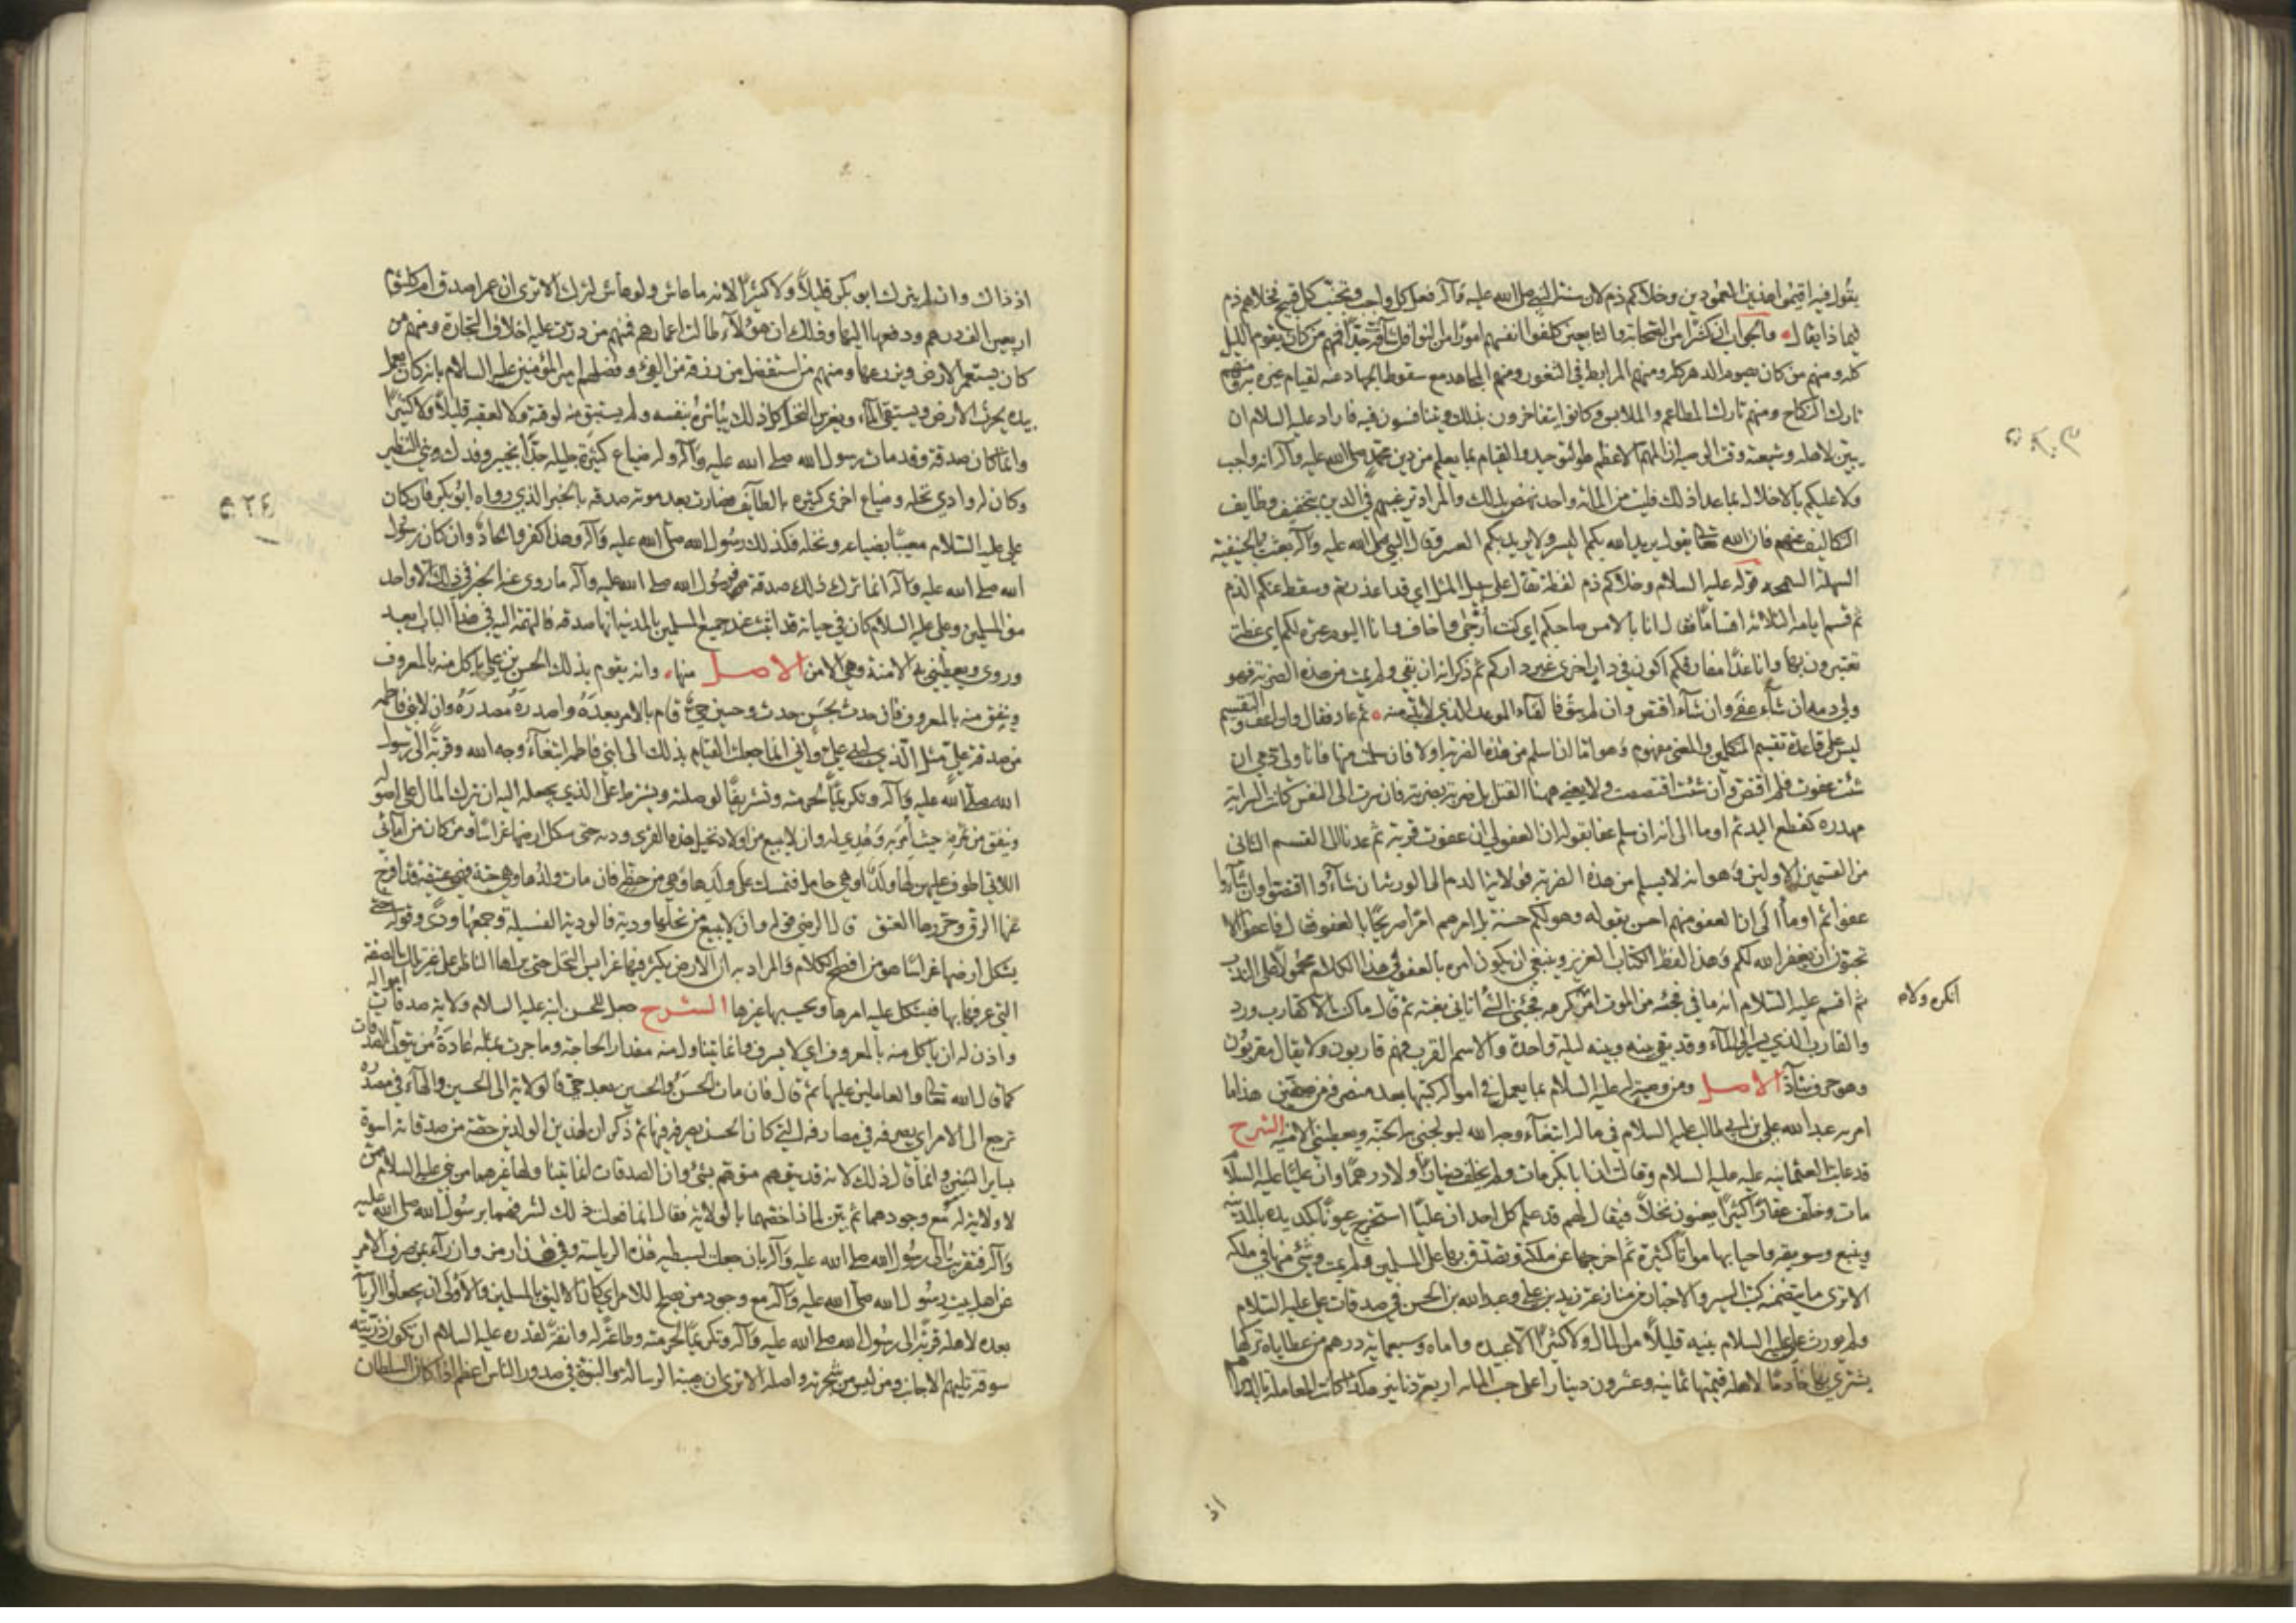 يقول فيه اقيموا هذين العمودين وخلاكم ذم لان سنة النبي صلى الله عليه وآله فعل كل واجب وتجنب كل قبيح فخلاهم ذم
لماذا يقال والجواب ان كثيرا من الصحابة والتابعين كلفوا انفسهم امورا من النوافل شاقة جدا فمنهم من كان يقوم الليل
كله ومنهم من كان يصوم الدهر كله ومنهم المرابط في الثغور ومنهم المجاهد مع سقوط الجهاد عنه لقيام غيره به ومنهم
تارك النكاح ومنهم تارك المطاعم والملابس وكانوا يتفاخرون بذلك ويتنافسون فيه فاراد عليه السلام ان
يبين لاهله وشيعته وقت الوصية ان المهم الاعظم هو التوحيد والقيام بما يعلم من دين محمد صلى الله عليه وآله انه واجب
ولا عليكم بالاخلال بما عدا ذلك فليت من المائة واحد نهض بذلك والمراد ترغيبهم في الدين بتخفيف وظايف
التكاليف عنهم فان الله تعالى يقول يريد الله بكم اليسر ولا يريد بكم العسر وقال النبي صلى الله عليه وآله بعثت بالحنيفية
السهلة السمحه قوله عليه السلام وخلاكم ذم لفظة تقال على سبيل المثل اي قد اعذرتم وسقط عنكم الذم
ثم قسم ايامه الثلاثة اقساما فقال انا بالامس صاحبكم اي كنت ارجى واخاف وانا اليوم عبرة لكم اي عظة
تعتبرون بها وانا غدا مفارقكم اكون في دار اخرى غير داركم ثم ذكر انه ان بقي ولم يمت من هذه الضربة فهو
ولي دمه ان شاء عفى وان شاء اقتص وان لم يبق فالفناء الموعد الذي لا بد منه ثم عاد فقال وان اعف والتقسيم
ليس على قاعدة تقسيم المتكلمين والمعنى مفهوم وهو اما ان اسلم من هذه الضربة او لا فان سلمت منها فانا ولي دمي ان
شئت عفوت فلم اقتص وان شئت اقتصصت ولا يعني ههنا القتل بل ضربة بضربة فان سرت الى النفس كانت السراية
مهدره كقطع اليد ثم اوما الى انه ان سلم عفا بقوله ان العفو لي ان عفوت قربة ثم عدنا الى القسم الثاني
من القسمين الاولين وهو انه لا يسلم من هذه الضربة فولاية الدم الى الورثة ان شاؤا اقتصوا وان شاؤا
عفوا ثم اوما الى ان العفو منهم احسن بقوله وهو لكم حسنة بل امرهم امرا صريحا بالعفو فقال فاعفوا الا
تحبون ان يغفر الله لكم وهذا لفظ الكتاب العزيز وينبغي ان يكون امره بالعفو في هذا الكلام محمولا على الندب
ثم اقسم عليه السلام انه ما فجئه من الموت امر كرهه فجئني الشئ اتاني بغتة ثم قال ما كنت الا كقارب ورد
انكره ولا
والقارب الذي يسير الى الماء وقد بقي بينه وبينه ليلة واحدة والاسم القرب فهم قاربون ولا يقال مقربون
وهو حرف شاذ الاصل ومن وصية له عليه السلام بما يعمل في امواله كتبها بعد منصرفه من صفين هذا ما
امر به عبد الله علي بن ابي طالب عليه السلام في ماله ابتغاء وجه الله ليولجني به الجنة ويعطيني الامنية الشرح
قد عابت العثمانيه عليه السلام وقالت ان ابا بكر مات ولم يخلف دينارا ولا درهما وان عليا عليه السلام
مات وخلف عقارا كثيرا يعنون نخلا فيقال لهم قد علم كل احد ان عليا استخرج عيونا بكد يده بالمدينة
وينبع وسويقه واحيا بها مواتا كثيرة ثم اخرجها عن ملكه وتصدق بها على المسلمين ولم يمت وشئ منها في ملكه
الا ترى ما يتضمنه كتب السير والاخبار من منازعة زيد بن علي وعبد الله بن الحسن في صدقات علي عليه السلام
ولم يورث علي عليه السلام بنيه قليلا من المال ولا كثيرا الا عبيده واماه وسبعمائة درهم من عطاياه تركها
يشتري بها خادما لاهله قيمتها ثمانية وعشرون دينارا على حسب المائه اربعة دنانير هكذا كانت المعاملة بالدراهم
اذ
اذ ذاك وانما لم يترك ابو بكر قليلا ولا كثيرا لانه ما عاش ولو عاش لترك الا ترى ان عمر اصدق ام كلثوم
اربعين الف درهم ودفعها اليها وذلك ان هؤلاء طالت اعمارهم فمنهم من درت عليه اخلاف التجارة ومنهم من
كان يستعمر الارض ويزرعها ومنهم من استفضل من رزقه من الفئ وفضلهم امير المؤمنين عليه السلام بانه كان يعمل
بيده يحرث الارض ويستقي الماء ويغرس النخل كل ذلك يباشره بنفسه ولم يستبق منه لوقته ولا لعقبه قليلا ولا كثيرا
وانما كان صدقة وقد مات رسول الله صلى الله عليه وآله وله ضياع كثيرة جليلة جدا بخيبر وفدك وبني النضير
وكان له وادي نخله وضياع اخرى كثيره بالطائف فصارت بعد موته صدقه بالخبر الذي رواه ابو بكر فان كان
علي عليه السلام معيبا بضياعه ونخله فكذلك رسول الله صلى الله عليه وآله وهذا كفر والحاد وان كان رسول
الله صلى الله عليه وآله انما ترك ذلك صدقة فرسول الله صلى الله عليه وآله ما روى عنه الخبر في ذلك الا واحد
من المسلمين وعلي عليه السلام كان في حياته قد اثبت عند جميع المسلمين بالمدينة انها صدقه فالتهمة اليه في هذا الباب ابعد
وروى ويعطيني به الامنة وهي الامن الاصل منها وانه يقوم بذلك الحسن بن علي ياكل منه بالمعروف
وينفق منه بالمعروف فان حدث بحسن حدث وحسين حي قام بالامر بعده واصدره مصدره وان لابني فاطمه
من صدقة علي مثل الذي لبني علي واني انما جعلت القيام بذلك الى ابني فاطمه ابتغاء وجه الله وقربة الى رسول
الله صلى الله عليه وآله وتكريما لحرمته وتشريفا لوصلته ويشترط على الذي يجعله اليه ان يترك المال على اصوله
وينفق من ثمره حيث امر به وهدي له وان لا يبيع من اولاد نخيل هذه القرى وديه حتى تشكل ارضها غراسا ومن كان من امائي
اللاتي اطوف عليهن لها ولد او هي حامل فتمسك على ولدها وهي من حظه فان مات ولدها وهي حية فهي عتيقة قد افرج
عنها الرق وحررها العتق قال الرضي قوله وان لا يبيع من نخلها ودية فالودية الفسيلة وجمعها ودي وقوله حتى
يشكل ارضها غراسا هو من افصح الكلام والمراد به ان الارض يكثر فيها غراس النخل حتى يراها الناظر على غير تلك الصفة
التي عرفها بها فيشكل عليه امرها ويحسبها غيرها الشرح جعل للحسن ابنه عليه السلام ولاية صدقات امواله
واذن له ان ياكل منه بالمعروف اي لا يسرف وانما يتناول منه مقدار الحاجة وما جرت بمثله عادة من يتولى الصدقات
كما قال الله تعالى والعاملين عليها ثم قال فان مات الحسن والحسين بعده حي فالولاية الى الحسين والهاء في مصدره
ترجع الى الامر اي يصرفه في مصارفه التي كان الحسن يصرفه فيها ثم ذكر ان لهذين الولدين حصة من صدقاته اسوة
بساير البنين وانما قال ذلك لانه قد يتوهم متوهم بشئ وان الصدقات انما يتناولها غيرهما من بني علي عليه السلام ممن
لا ولاية له مع وجودهما ثم بين لماذا خصهما بالولاية فقال انما فعلت ذلك لشرفهما برسول الله صلى الله عليه
وآله فتقربت الى رسول الله صلى الله عليه وآله بان جعلت لسبطيه هذه الرياسة وفي هذا رمز وازراء بمن صرف الامر
عن اهل بيت رسول الله صلى الله عليه وآله مع وجود من يصلح للامر اي كان الاليق بالمسلمين والاولى ان يجعلوا الرياسة
بعده لاهله قربة الى رسول الله صلى الله عليه وآله وتكريما لحرمته وطاعة له وانفة لقدره عليه السلام ان تكون ذريته
سوقة تليهم الاجانب ومن ليس من شجرته واصله الا ترى ان هيبة الرسالة والنبوة في صدور الناس اعظم اذا كان السلطان
٥٢٤